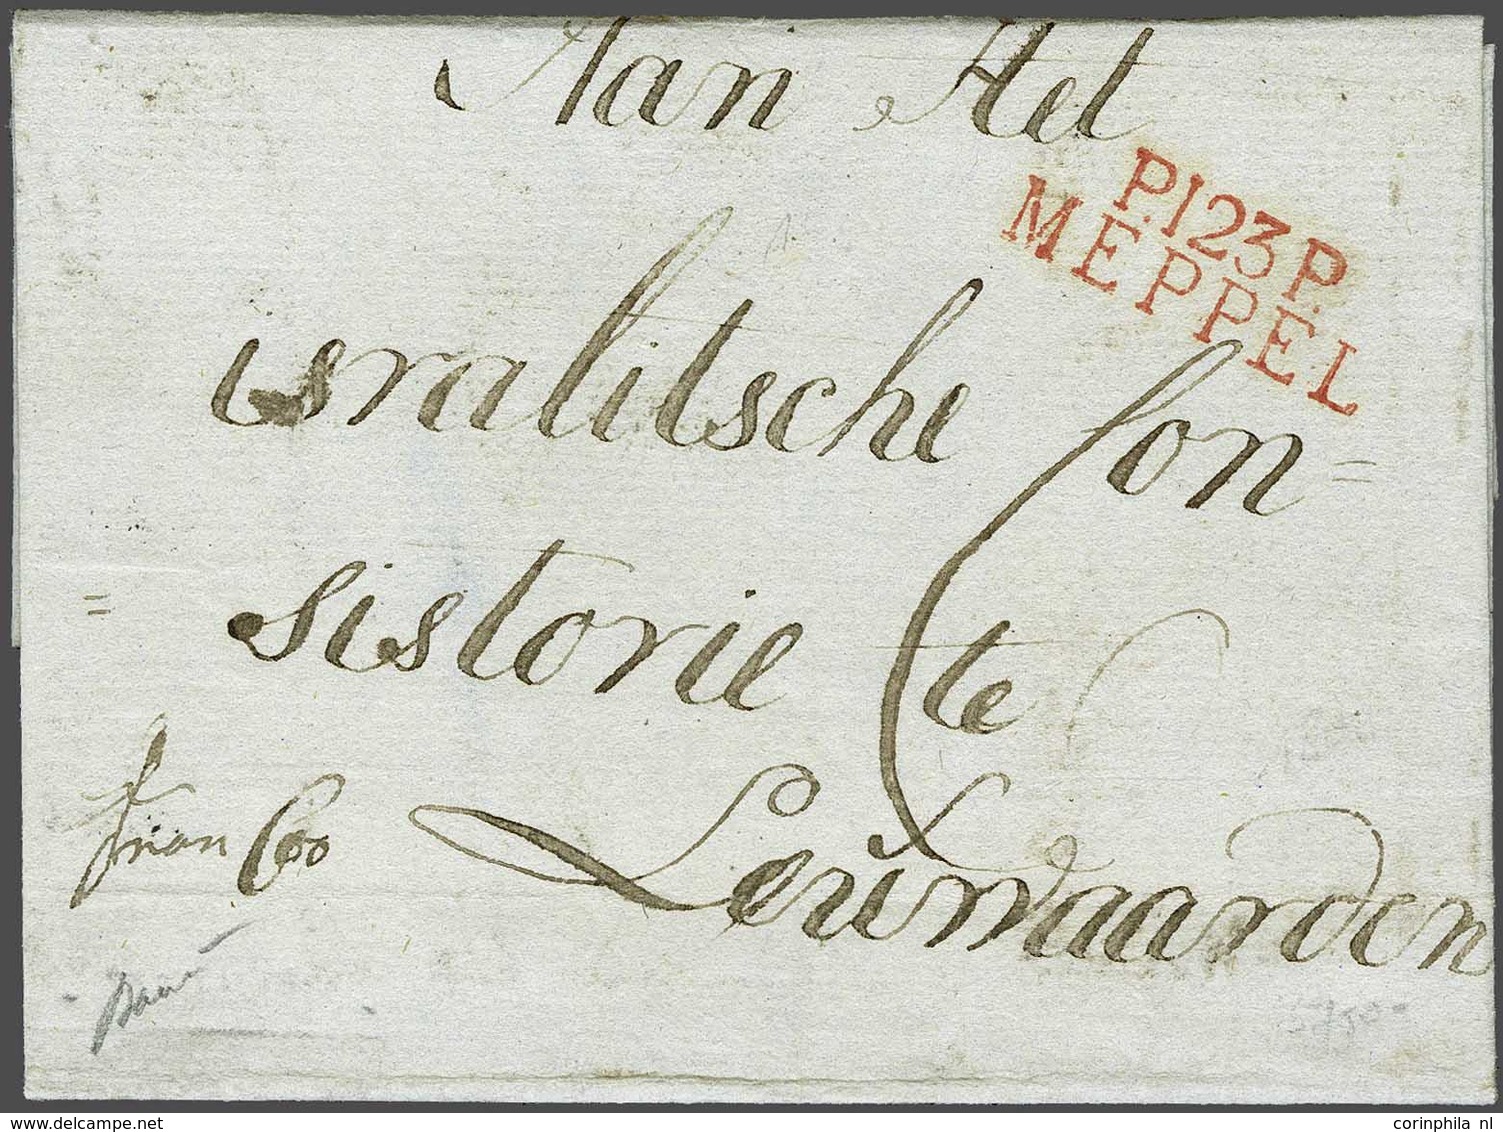 Aan Het
P.123 P.
MEPPEL
isralitsche Con=
= sistorie te
Leeuwaarden
franco
delcampe.net
corinphila nl